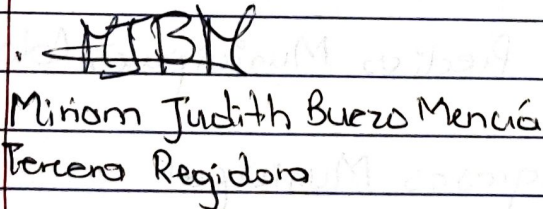 MJBM
Miriam Judith Buezo Mencía
Tercera Regidora